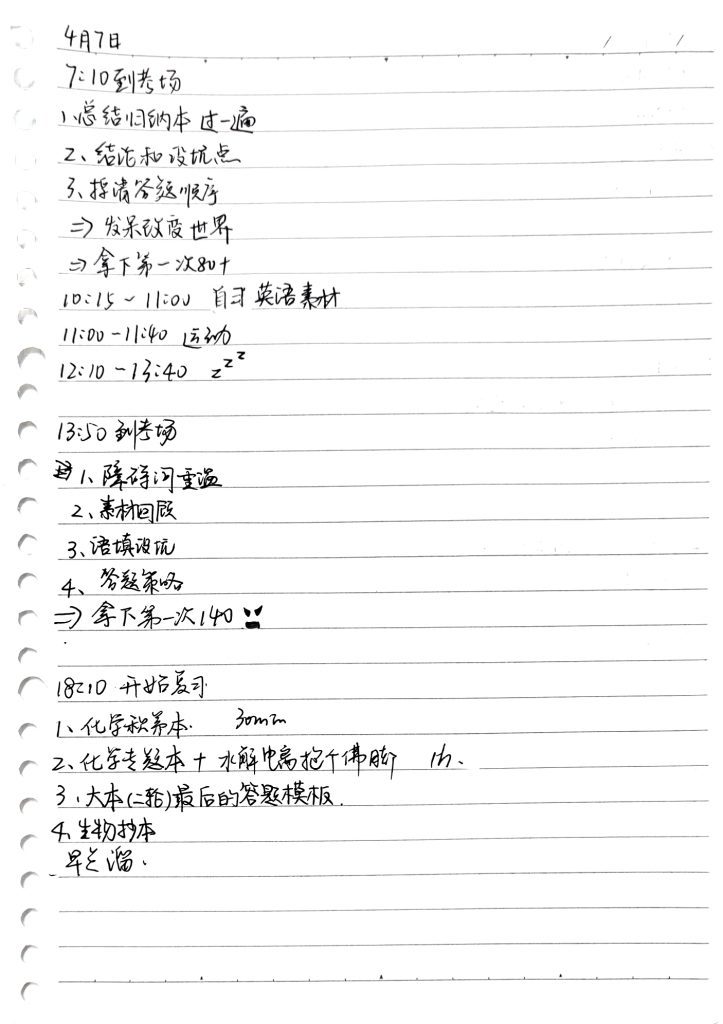 4月7日
7:10到考场
1、总结归纳本 过一遍
2、结论和设坑点
3、择清答题顺序
⇒ 发呆改变世界
⇒ 拿下第一次80+
10:15 ~ 11:00 自习 英语素材
11:00 - 11:40 运动
12:10 - 13:40 zzz
13:50 到考场
1、障碍词重温
2、素材回顾
3、语填设坑
4、答题策略
⇒ 拿下第一次140
18:10 开始复习
1、化学积累本. 30min
2、化学专题本 + 水解电离抱个佛脚 1h.
3、大本(二轮)最后的答题模板.
4、生物抄本
早点溜.